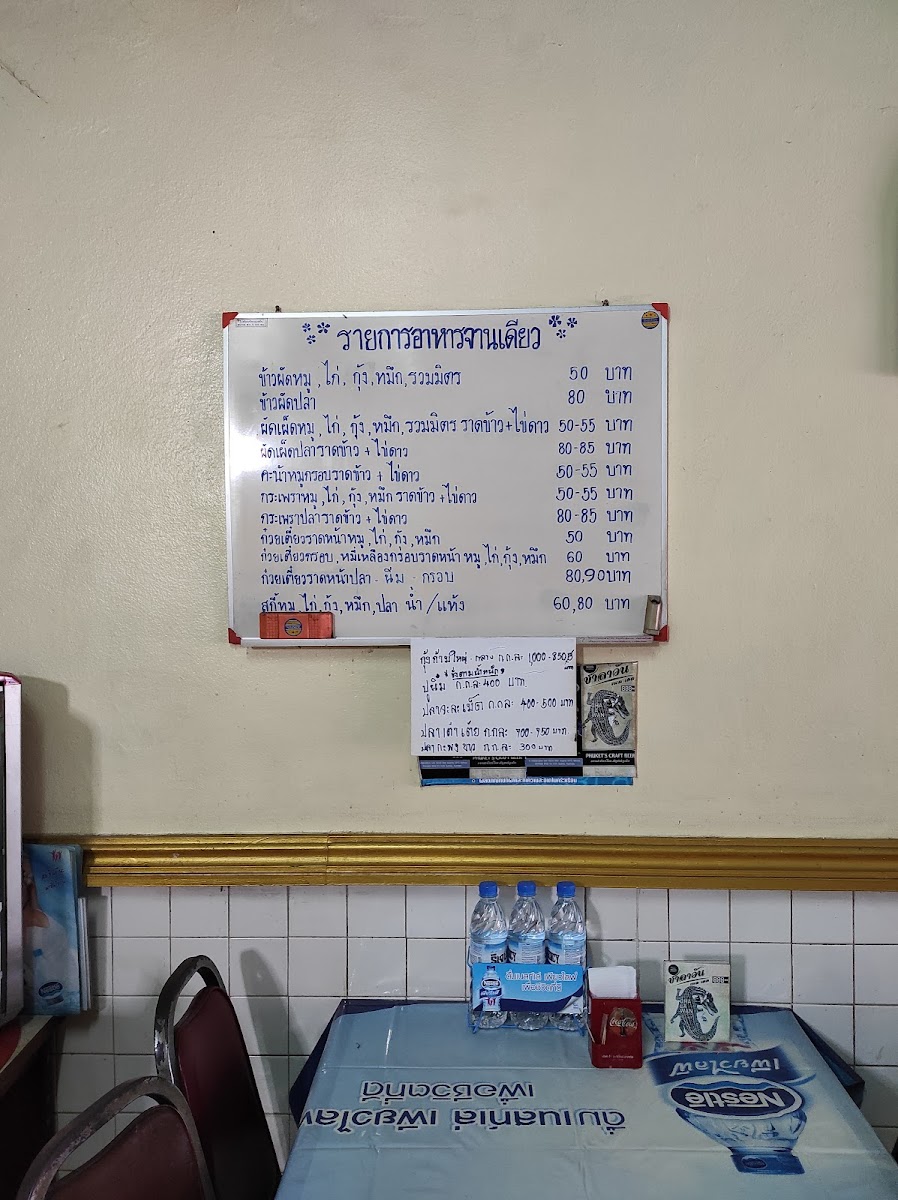 รายการอาหารจานเดียว
ข้าวผัดหมู, ไก่, กุ้ง, หมึก, รวมมิตร 50 บาท
ข้าวผัดปลา 80 บาท
ผัดเผ็ดหมู, ไก่, กุ้ง, หมึก, รวมมิตร ราดข้าว+ไข่ดาว 50-55 บาท
ผัดเผ็ดปลาราดข้าว + ไข่ดาว 80-85 บาท
คะน้าหมูกรอบราดข้าว + ไข่ดาว 50-55 บาท
กระเพราหมู, ไก่, กุ้ง, หมึก ราดข้าว +ไข่ดาว 50-55 บาท
กระเพราปลาราดข้าว + ไข่ดาว 80-85 บาท
ก๋วยเตี๋ยวราดหน้าหมู, ไก่, กุ้ง, หมึก 50 บาท
ก๋วยเตี๋ยวกรอบ, หมี่เหลืองกรอบราดหน้า หมู, ไก่, กุ้ง, หมึก 60 บาท
ก๋วยเตี๋ยวราดหน้าปลา - นิ่ม - กรอบ 80,90บาท
สุกี้หมู, ไก่, กุ้ง, หมึก, ปลา น้ำ / แห้ง 60,80 บาท
กุ้งก้ามใหญ่ - กลาง ก.ก.ละ 1,000-850฿
ปูนิ่ม ก.ก.ละ 400 บาท
ปลาจะละเม็ด ก.ก.ละ 400-500 บาท
ปลาเต๋าเต้ย ก.ก.ละ 900-950 บาท
ปลากะพงขาว ก.ก.ละ 300 บาท
ชาลาวัน
PHUKET'S CRAFT BEER
PHUKET'S CRAFT BEER
ดื่มเนสท์เล่ เพียวไลฟ์
เพื่อชีวิตที่ดี
Coca-Cola
ชาลาวัน
เพียวไลฟ์
Nestlé
ดื่มเนสท์เล่ เพียวไลฟ์
เพื่อชีวิตที่ดี